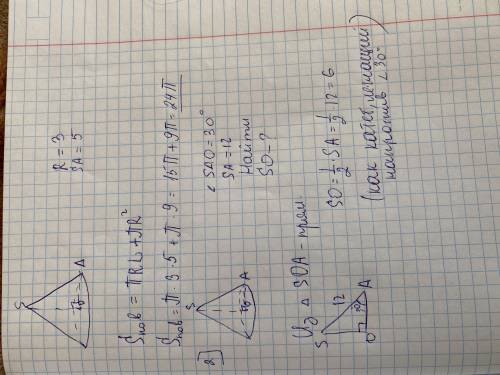 S
A
R = 3
SA = 5
Sпов = πRL + πR²
Sпов = π · 3 · 5 + π · 9 = 15π + 9π = 24π
2
S
A
∠SAO = 30°
SA = 12
Найти
SO - ?
Из △ SOA - прям.
S
12
O
A
SO = 1/2 SA = 1/2 12 = 6
(как катет, лежащий
напротив ∠30°)